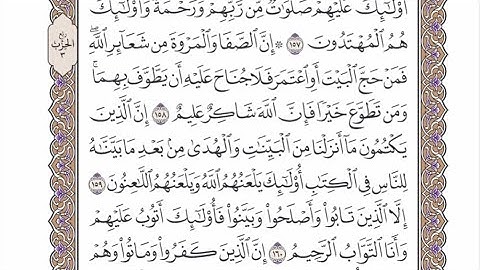 أُوْلَٰٓئِكَ عَلَيْهِمْ صَلَوَٰتٌ مِّن رَّبِّهِمْ وَرَحْمَةٌ وَأُوْلَٰٓئِكَ
هُمُ ٱلْمُهْتَدُونَ ١٥٧ ۞ إِنَّ ٱلصَّفَا وَٱلْمَرْوَةَ مِن شَعَآئِرِ ٱللَّهِ
فَمَنْ حَجَّ ٱلْبَيْتَ أَوِ ٱعْتَمَرَ فَلَا جُنَاحَ عَلَيْهِ أَن يَطَّوَّفَ بِهِمَا ۚ
وَمَن تَطَوَّعَ خَيْرًا فَإِنَّ ٱللَّهَ شَاكِرٌ عَلِيمٌ ١٥٨ إِنَّ ٱلَّذِينَ
يَكْتُمُونَ مَآ أَنزَلْنَا مِنَ ٱلْبَيِّنَٰتِ وَٱلْهُدَىٰ مِنۢ بَعْدِ مَا بَيَّنَّٰهُ
لِلنَّاسِ فِي ٱلْكِتَٰبِ أُوْلَٰٓئِكَ يَلْعَنُهُمُ ٱللَّهُ وَيَلْعَنُهُمُ ٱللَّٰعِنُونَ ١٥٩
إِلَّا ٱلَّذِينَ تَابُوا۟ وَأَصْلَحُوا۟ وَبَيَّنُوا۟ فَأُوْلَٰٓئِكَ أَتُوبُ عَلَيْهِمْ
وَأَنَا ٱلتَّوَّابُ ٱلرَّحِيمُ ١٦٠ إِنَّ ٱلَّذِينَ كَفَرُوا۟ وَمَاتُوا۟ وَهُمْ
ربع
الحزب
٣